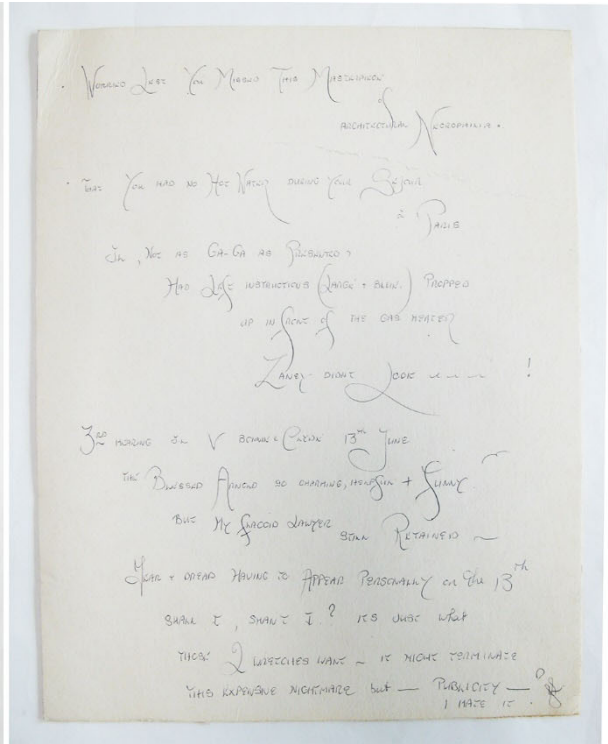 Worried Lest You Missed This Masterpiece
of
Architectural Necrophilia.
That You had no Hot Water during Your Séjour
à Paris
, Not as Ga-Ga as Presented,
Had Left instructions (Large + ) Propped
up in front of the gas heater
didnt Look — — — !
3rd hearing V 13th June
The Blessed Arnold so charming, + Funny
But My Flaccid Lawyer
still Retained —
Fear + dread Having to Appear Personally on the 13th
Shall I, Shan't I? Its just what
those 2 wretches want — it might terminate
this expensive nightmare but — Publicity —
I hate it.